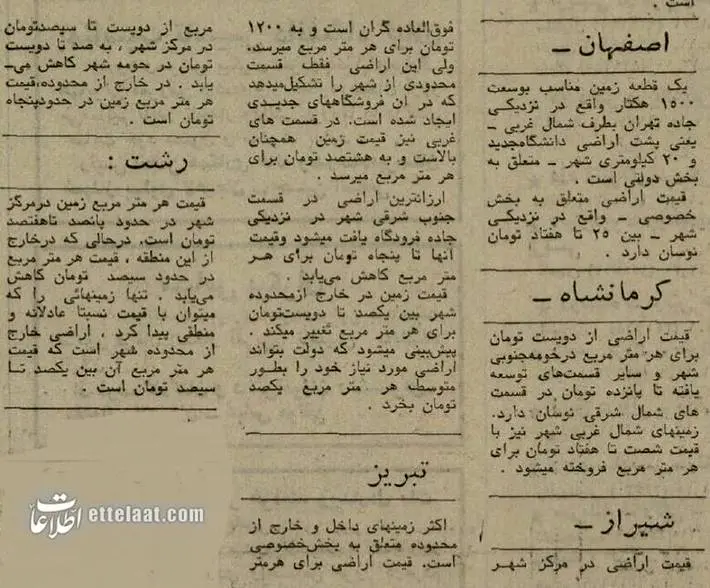 است .
اصفهان ـ
یک قطعه زمین مناسب بوسعت
۱۵۰۰ هکتار واقع در نزدیکی
جاده تهران بطرف شمال غربی ـ
یعنی پشت اراضی دانشگاه‌جدید
و ۲۰ کیلومتری شهر ـ متعلق به
بخش دولتی است .
قیمت اراضی متعلق به بخش
خصوصی ـ واقع در نزدیکی
شهر ـ بین ۲۵ تا هفتاد تومان
نوسان دارد .
کرمانشاه ـ
قیمت اراضی از دویست تومان
برای هر متر مربع درحومه‌جنوبی
شهر و سایر قسمت‌های توسعه
یافته تا پانزده تومان در قسمت
های شمال شرقی نوسان دارد.
زمینهای شمال غربی شهر نیز با
قیمت شصت تا هفتاد تومان برای
هر متر مربع فروخته میشود .
شیراز ـ
قیمت اراضی در مرکز شهر
فوق‌العاده گران است و به ۱۲۰۰
تومان برای هر متر مربع میرسد.
ولی این اراضی فقط قسمت
محدودی از شهر را تشکیل‌میدهد
که در آن فروشگاههای جدیدی
ایجاد شده است. در قسمت های
غربی نیز قیمت زمین همچنان
بالاست و به هشتصد تومان برای
هر متر مربع میرسد .
ارزانترین اراضی در قسمت
جنوب شرقی شهر در نزدیکی
جاده فرودگاه یافت میشود وقیمت
آنها تا پنجاه تومان برای هر
متر مربع کاهش می‌یابد .
قیمت زمین در خارج ازمحدوده
شهر بین یکصد تا دویست‌تومان
برای هر متر مربع تغییر میکند .
پیش‌بینی میشود که دولت بتواند
اراضی مورد نیاز خود را بطور
متوسط هر متر مربع یکصد
تومان بخرد .
تبریز
اکثر زمینهای داخل و خارج از
محدوده متعلق به بخش‌خصوصی
است. قیمت اراضی برای هرمتر
مربع از دویست تا سیصدتومان
در مرکز شهر ، به صد تا دویست
تومان در حومه شهر کاهش می‌ـ
یابد . در خارج از محدوده،قیمت
هر متر مربع زمین در حدودپنجاه
تومان است .
رشت :
قیمت هر متر مربع زمین درمرکز
شهر در حدود پانصد تاهفتصد
تومان است. درحالی که درخارج
از این منطقه ، قیمت هر متر مربع
در حدود سیصد تومان کاهش
می‌یابد . تنها زمینهائی را که
میتوان با قیمت نسبتا عادلانه و
منطقی پیدا کرد ، اراضی خارج
از محدوده شهر است که قیمت
هر متر مربع آن بین یکصد تا
سیصد تومان است .
اطلاعات ettelaat.com